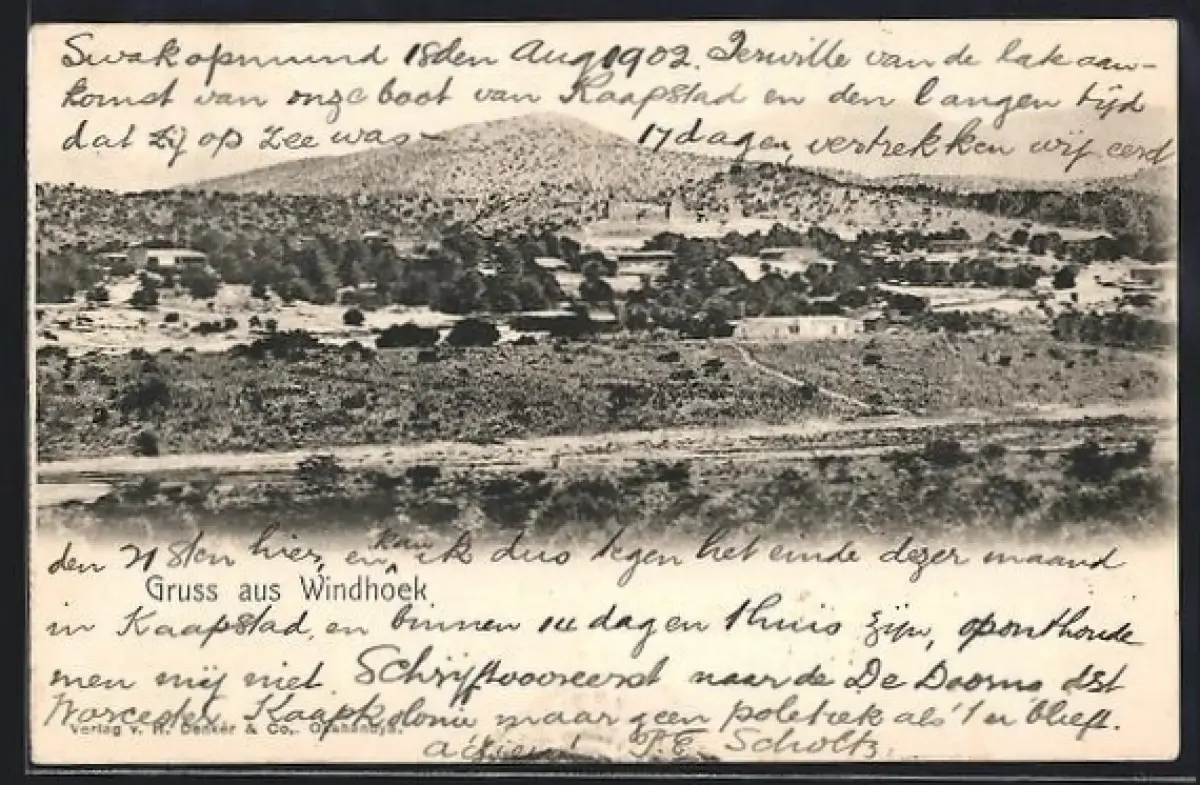 Swakopmund 18den Aug 1902. Terwille van de late aan-
komst van onze boot van Kaapstad en den langen tijd
dat zij op zee was - 17 dagen, vertrekken wij eerst
den 21sten hier, en kan ik dus tegen het einde dezer maand
Gruss aus Windhoek
in Kaapstad, en binnen dagen thuis zijn, oponthoude
men mij niet. Schrijf vooreerst naar de De Doorns dist
Worcester Kaapkolonie maar geen politiek als't u blieft.
Verlag v. H. Denker & Co.,
Scholtz